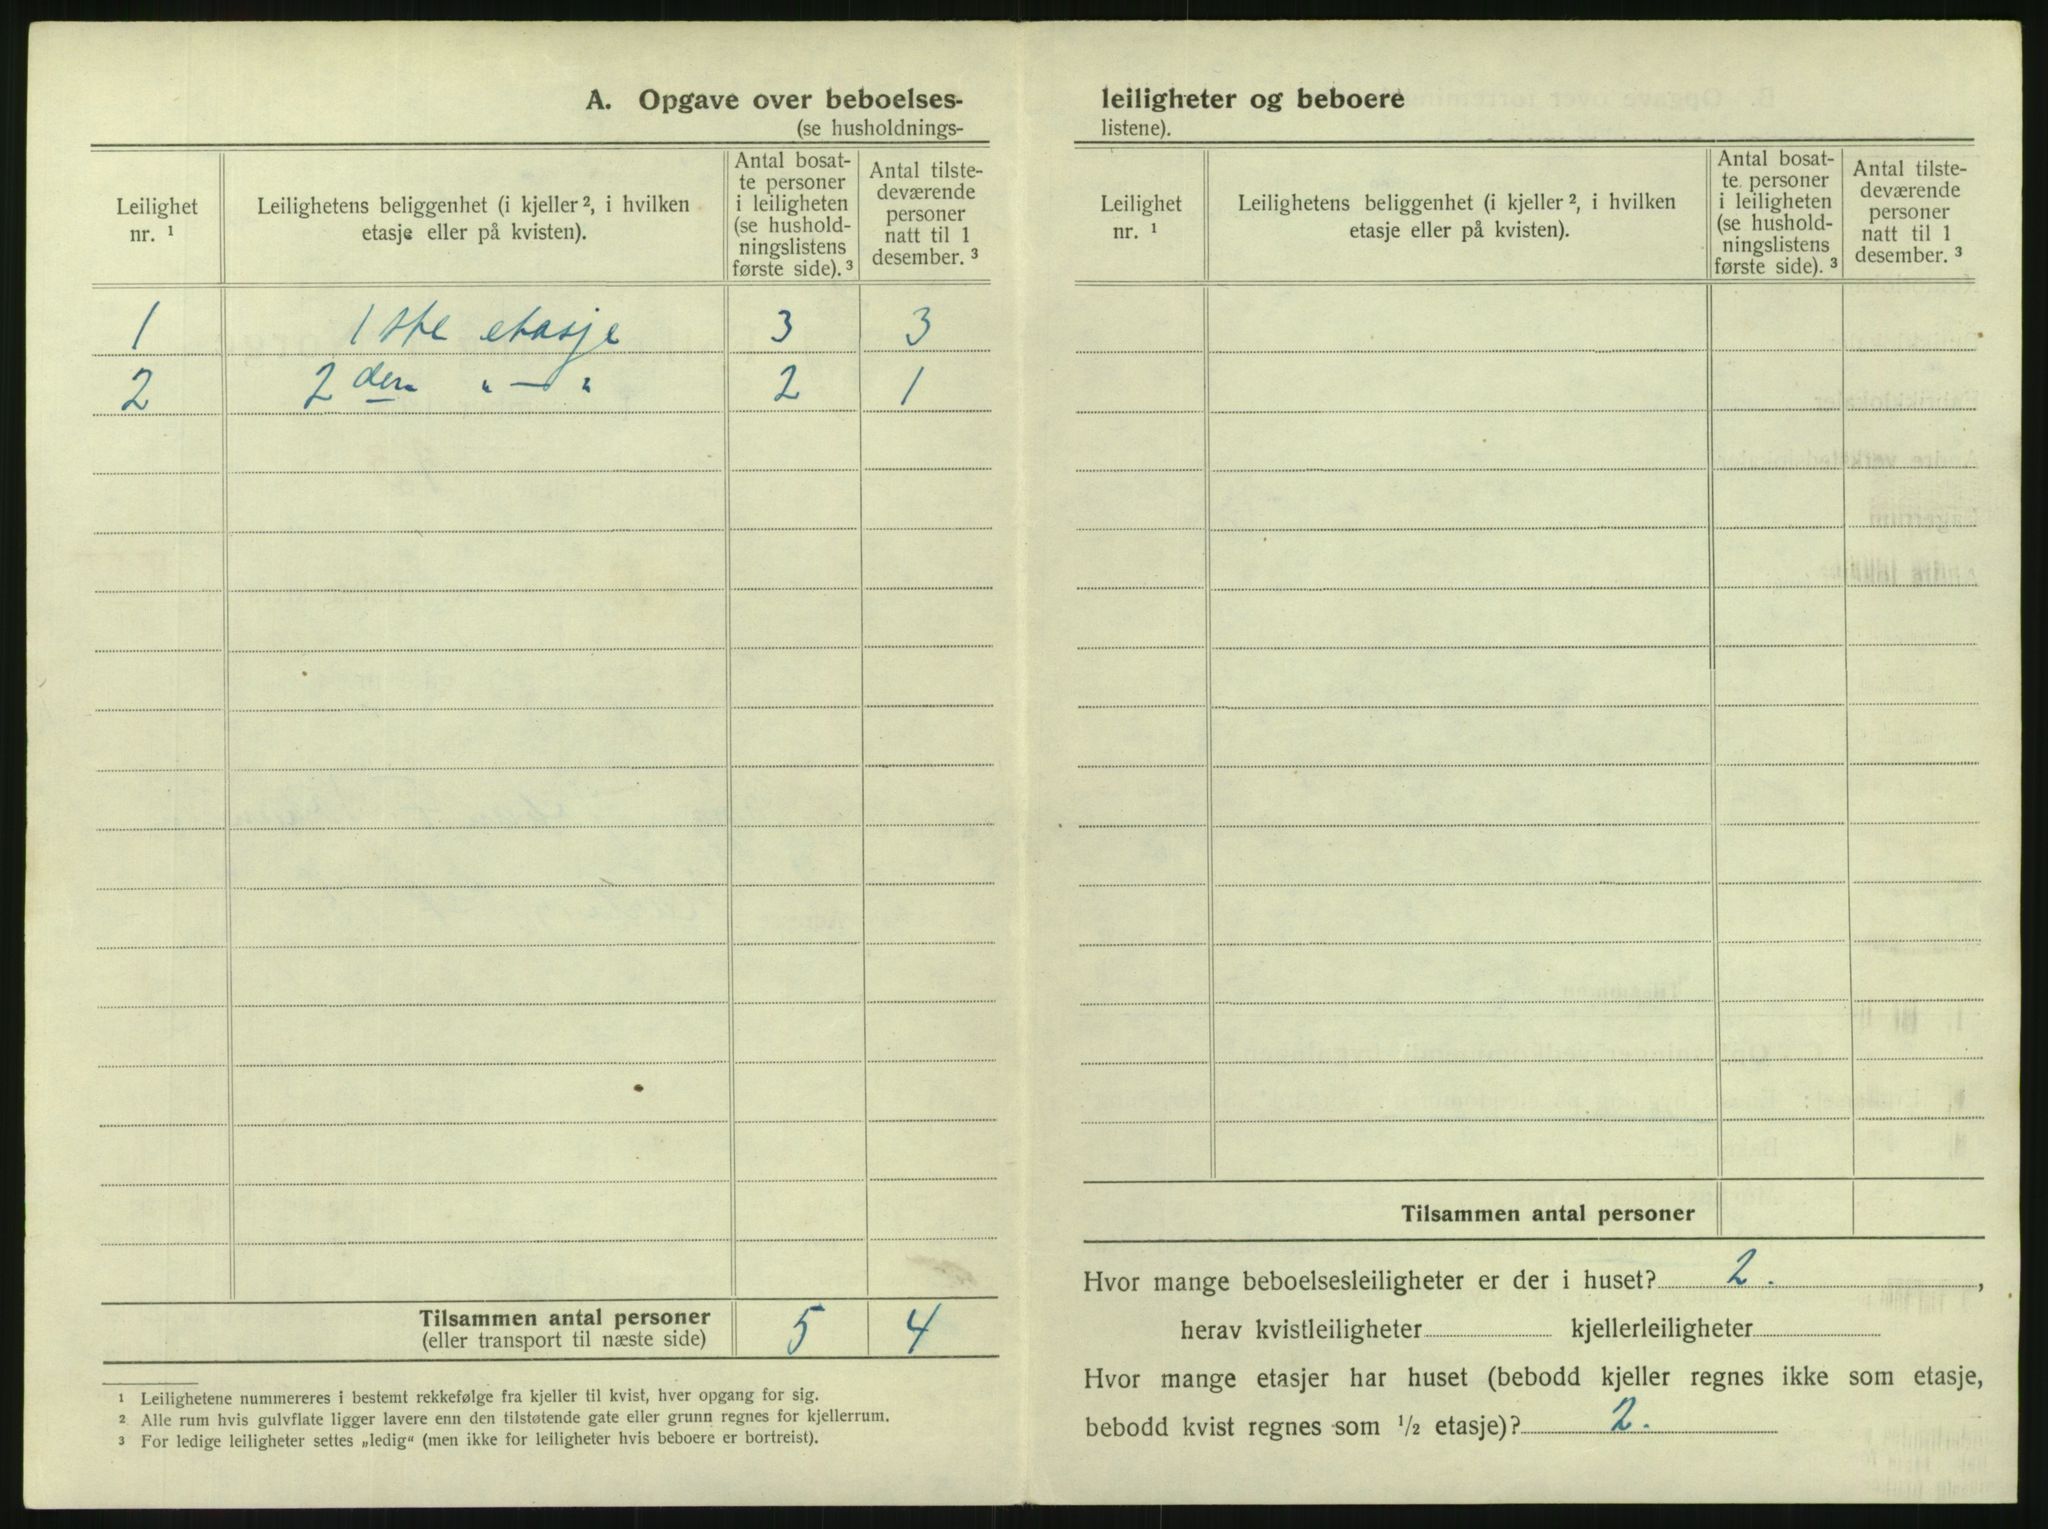 A. Opgave over beboelses-
(se husholdnings-
Leilighet
nr. ¹
Leilighetens beliggenhet (i kjeller ², i hvilken
etasje eller på kvisten).
Antal bosat-
te personer
i leiligheten
(se hushold-
ningslistens
første side). ³
Antal tilste-
deværende
personer
natt til 1
desember. ³
1 1ste etasje 3 3
2 2den „ — „ 2 1
Tilsammen antal personer
(eller transport til næste side)
5 4
¹ Leilighetene nummereres i bestemt rekkefølge fra kjeller til kvist, hver opgang for sig.
² Alle rum hvis gulvflate ligger lavere enn den tilstøtende gate eller grunn regnes for kjellerrum.
³ For ledige leiligheter settes „ledig“ (men ikke for leiligheter hvis beboere er bortreist).
leiligheter og beboere
listene).
Leilighet
nr. ¹
Leilighetens beliggenhet (i kjeller ², i hvilken
etasje eller på kvisten).
Antal bosat-
te personer
i leiligheten
(se hushold-
ningslistens
første side). ³
Antal tilste-
deværende
personer
natt til 1
desember. ³
Tilsammen antal personer
Hvor mange beboelsesleiligheter er der i huset? 2. ,
herav kvistleiligheter kjellerleiligheter
Hvor mange etasjer har huset (bebodd kjeller regnes ikke som etasje,
bebodd kvist regnes som ½ etasje)? 2.